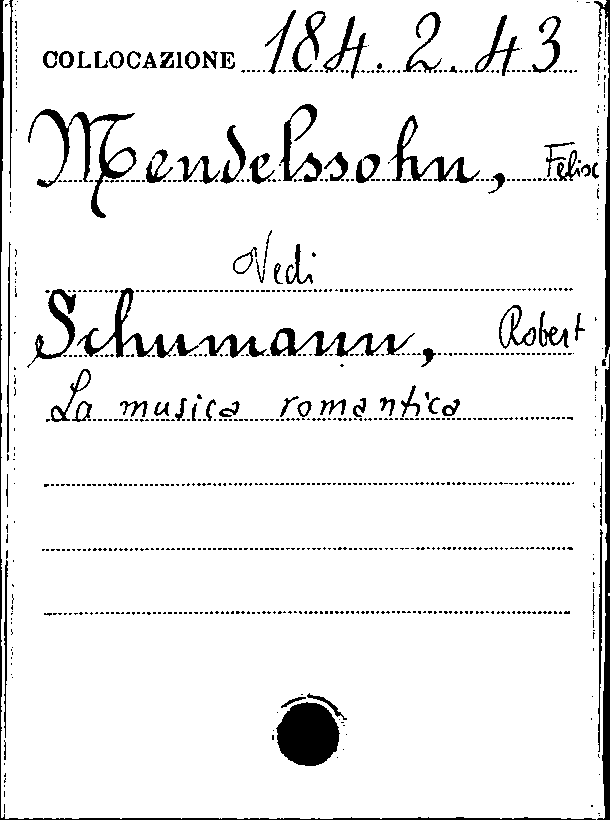 COLLOCAZIONE 184.2.43
Mendelssohn, Felix
Vedi
Schumann, Robert
La musica romantica